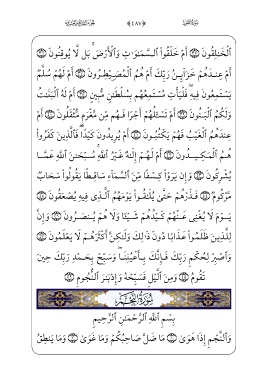 ٱلْخَٰلِقُونَ أَمْ خَلَقُوا۟ ٱلسَّمَٰوَٰتِ وَٱلْأَرْضَ ۚ بَل لَّا يُوقِنُونَ
أَمْ عِندَهُمْ خَزَآئِنُ رَبِّكَ أَمْ هُمُ ٱلْمُصَۣيْطِرُونَ أَمْ لَهُمْ سُلَّمٌ
يَسْتَمِعُونَ فِيهِ ۖ فَلْيَأْتِ مُسْتَمِعُهُم بِسُلْطَٰنٍ مُّبِينٍ أَمْ لَهُ ٱلْبَنَٰتُ
وَلَكُمُ ٱلْبَنُونَ أَمْ تَسْـَٔلُهُمْ أَجْرًا فَهُم مِّن مَّغْرَمٍ مُّثْقَلُونَ أَمْ
عِندَهُمُ ٱلْغَيْبُ فَهُمْ يَكْتُبُونَ أَمْ يُرِيدُونَ كَيْدًا ۖ فَٱلَّذِينَ كَفَرُوا۟
هُمُ ٱلْمَكِيدُونَ أَمْ لَهُمْ إِلَٰهٌ غَيْرُ ٱللَّهِ ۚ سُبْحَٰنَ ٱللَّهِ عَمَّا
يُشْرِكُونَ وَإِن يَرَوْا۟ كِسْفًا مِّنَ ٱلسَّمَآءِ سَاقِطًا يَقُولُوا۟ سَحَابٌ
مَّرْكُومٌ فَذَرْهُمْ حَتَّىٰ يُلَٰقُوا۟ يَوْمَهُمُ ٱلَّذِى فِيهِ يُصْعَقُونَ
يَوْمَ لَا يُغْنِى عَنْهُمْ كَيْدُهُمْ شَيْـًٔا وَلَا هُمْ يُنصَرُونَ وَإِنَّ
لِلَّذِينَ ظَلَمُوا۟ عَذَابًا دُونَ ذَٰلِكَ وَلَٰكِنَّ أَكْثَرَهُمْ لَا يَعْلَمُونَ
وَٱصْبِرْ لِحُكْمِ رَبِّكَ فَإِنَّكَ بِأَعْيُنِنَا ۖ وَسَبِّحْ بِحَمْدِ رَبِّكَ حِينَ
تَقُومُ وَمِنَ ٱلَّيْلِ فَسَبِّحْهُ وَإِدْبَٰرَ ٱلنُّجُومِ
سُورَةُ ٱلنَّجْمِ
بِسْمِ ٱللَّهِ ٱلرَّحْمَٰنِ ٱلرَّحِيمِ
وَٱلنَّجْمِ إِذَا هَوَىٰ مَا ضَلَّ صَاحِبُكُمْ وَمَا غَوَىٰ وَمَا يَنطِقُ